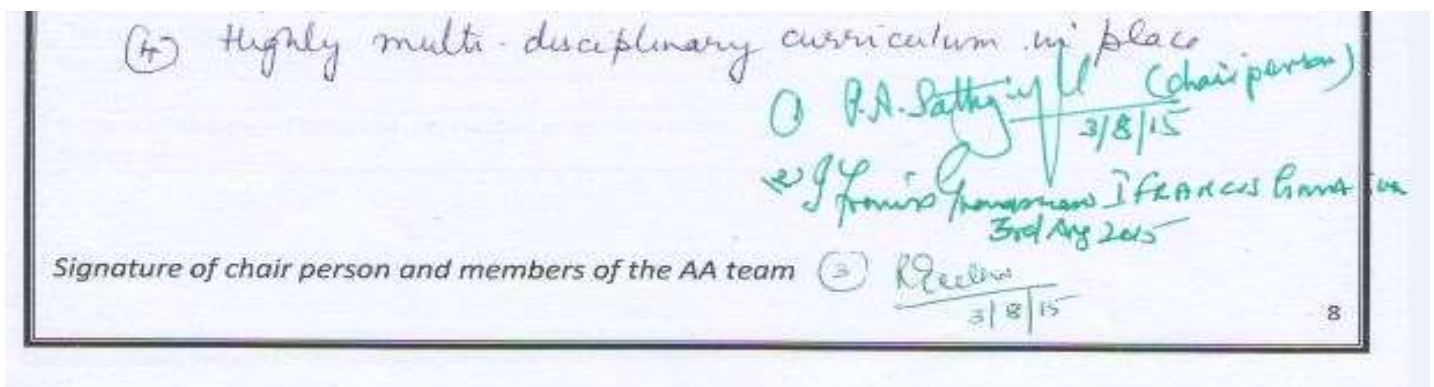 ④ Highly multi-disciplinary curriculum in place
① P.A. Sathy (Chairperson)
3/8/15
② I Francis I FRANCIS
3rd Aug 2015
Signature of chair person and members of the AA team ③
3/8/15
8